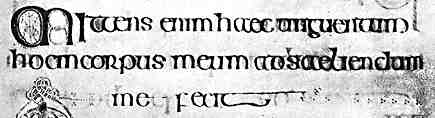 Mittens enim haec unguentum
hoc in corpus meum ad sepeliendum
me fecit